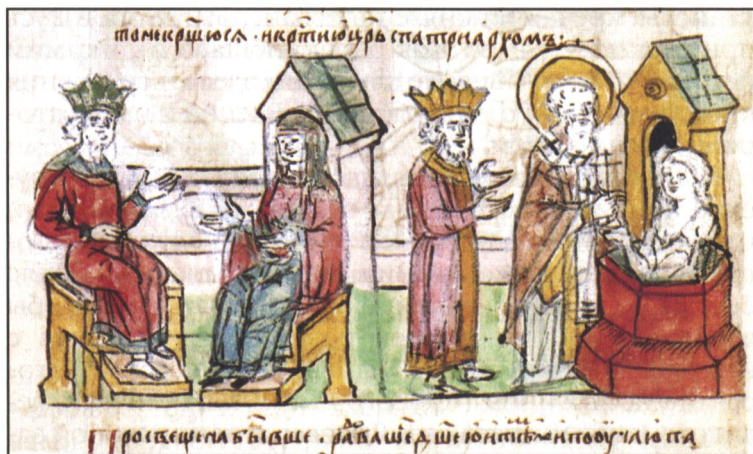 то не кр҃щюся · и кр҃ти ю цр҃ь с патриархомъ :
Просвещена бывше радоваше д҃шею и тѣлом и пооучи ю па